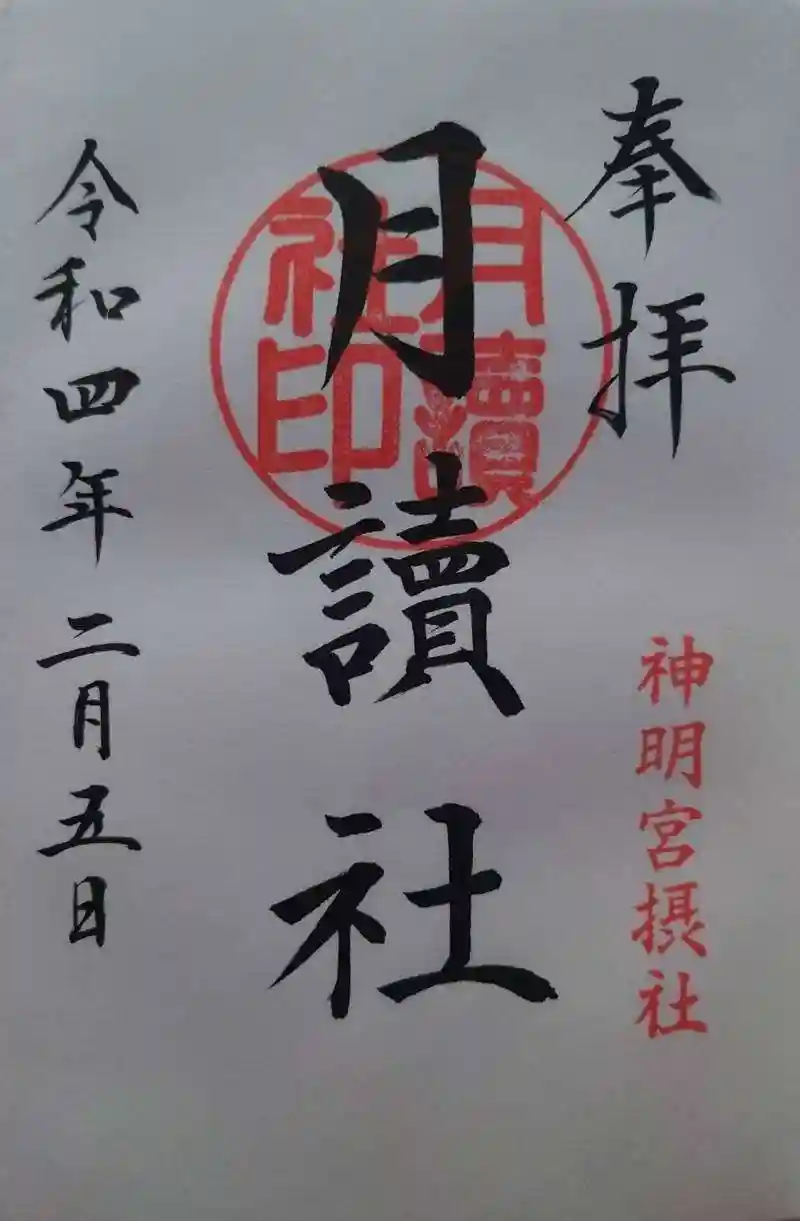 奉拝
神明宮摂社
月讀社
月讀社印
令和四年二月五日